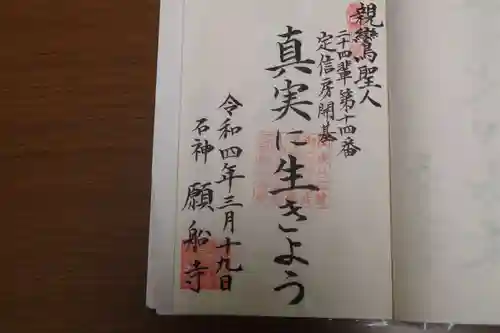 親鸞聖人
二十四輩第十四番
定信房開基
真実に生きよう
令和四年三月十九日
石神 願船寺